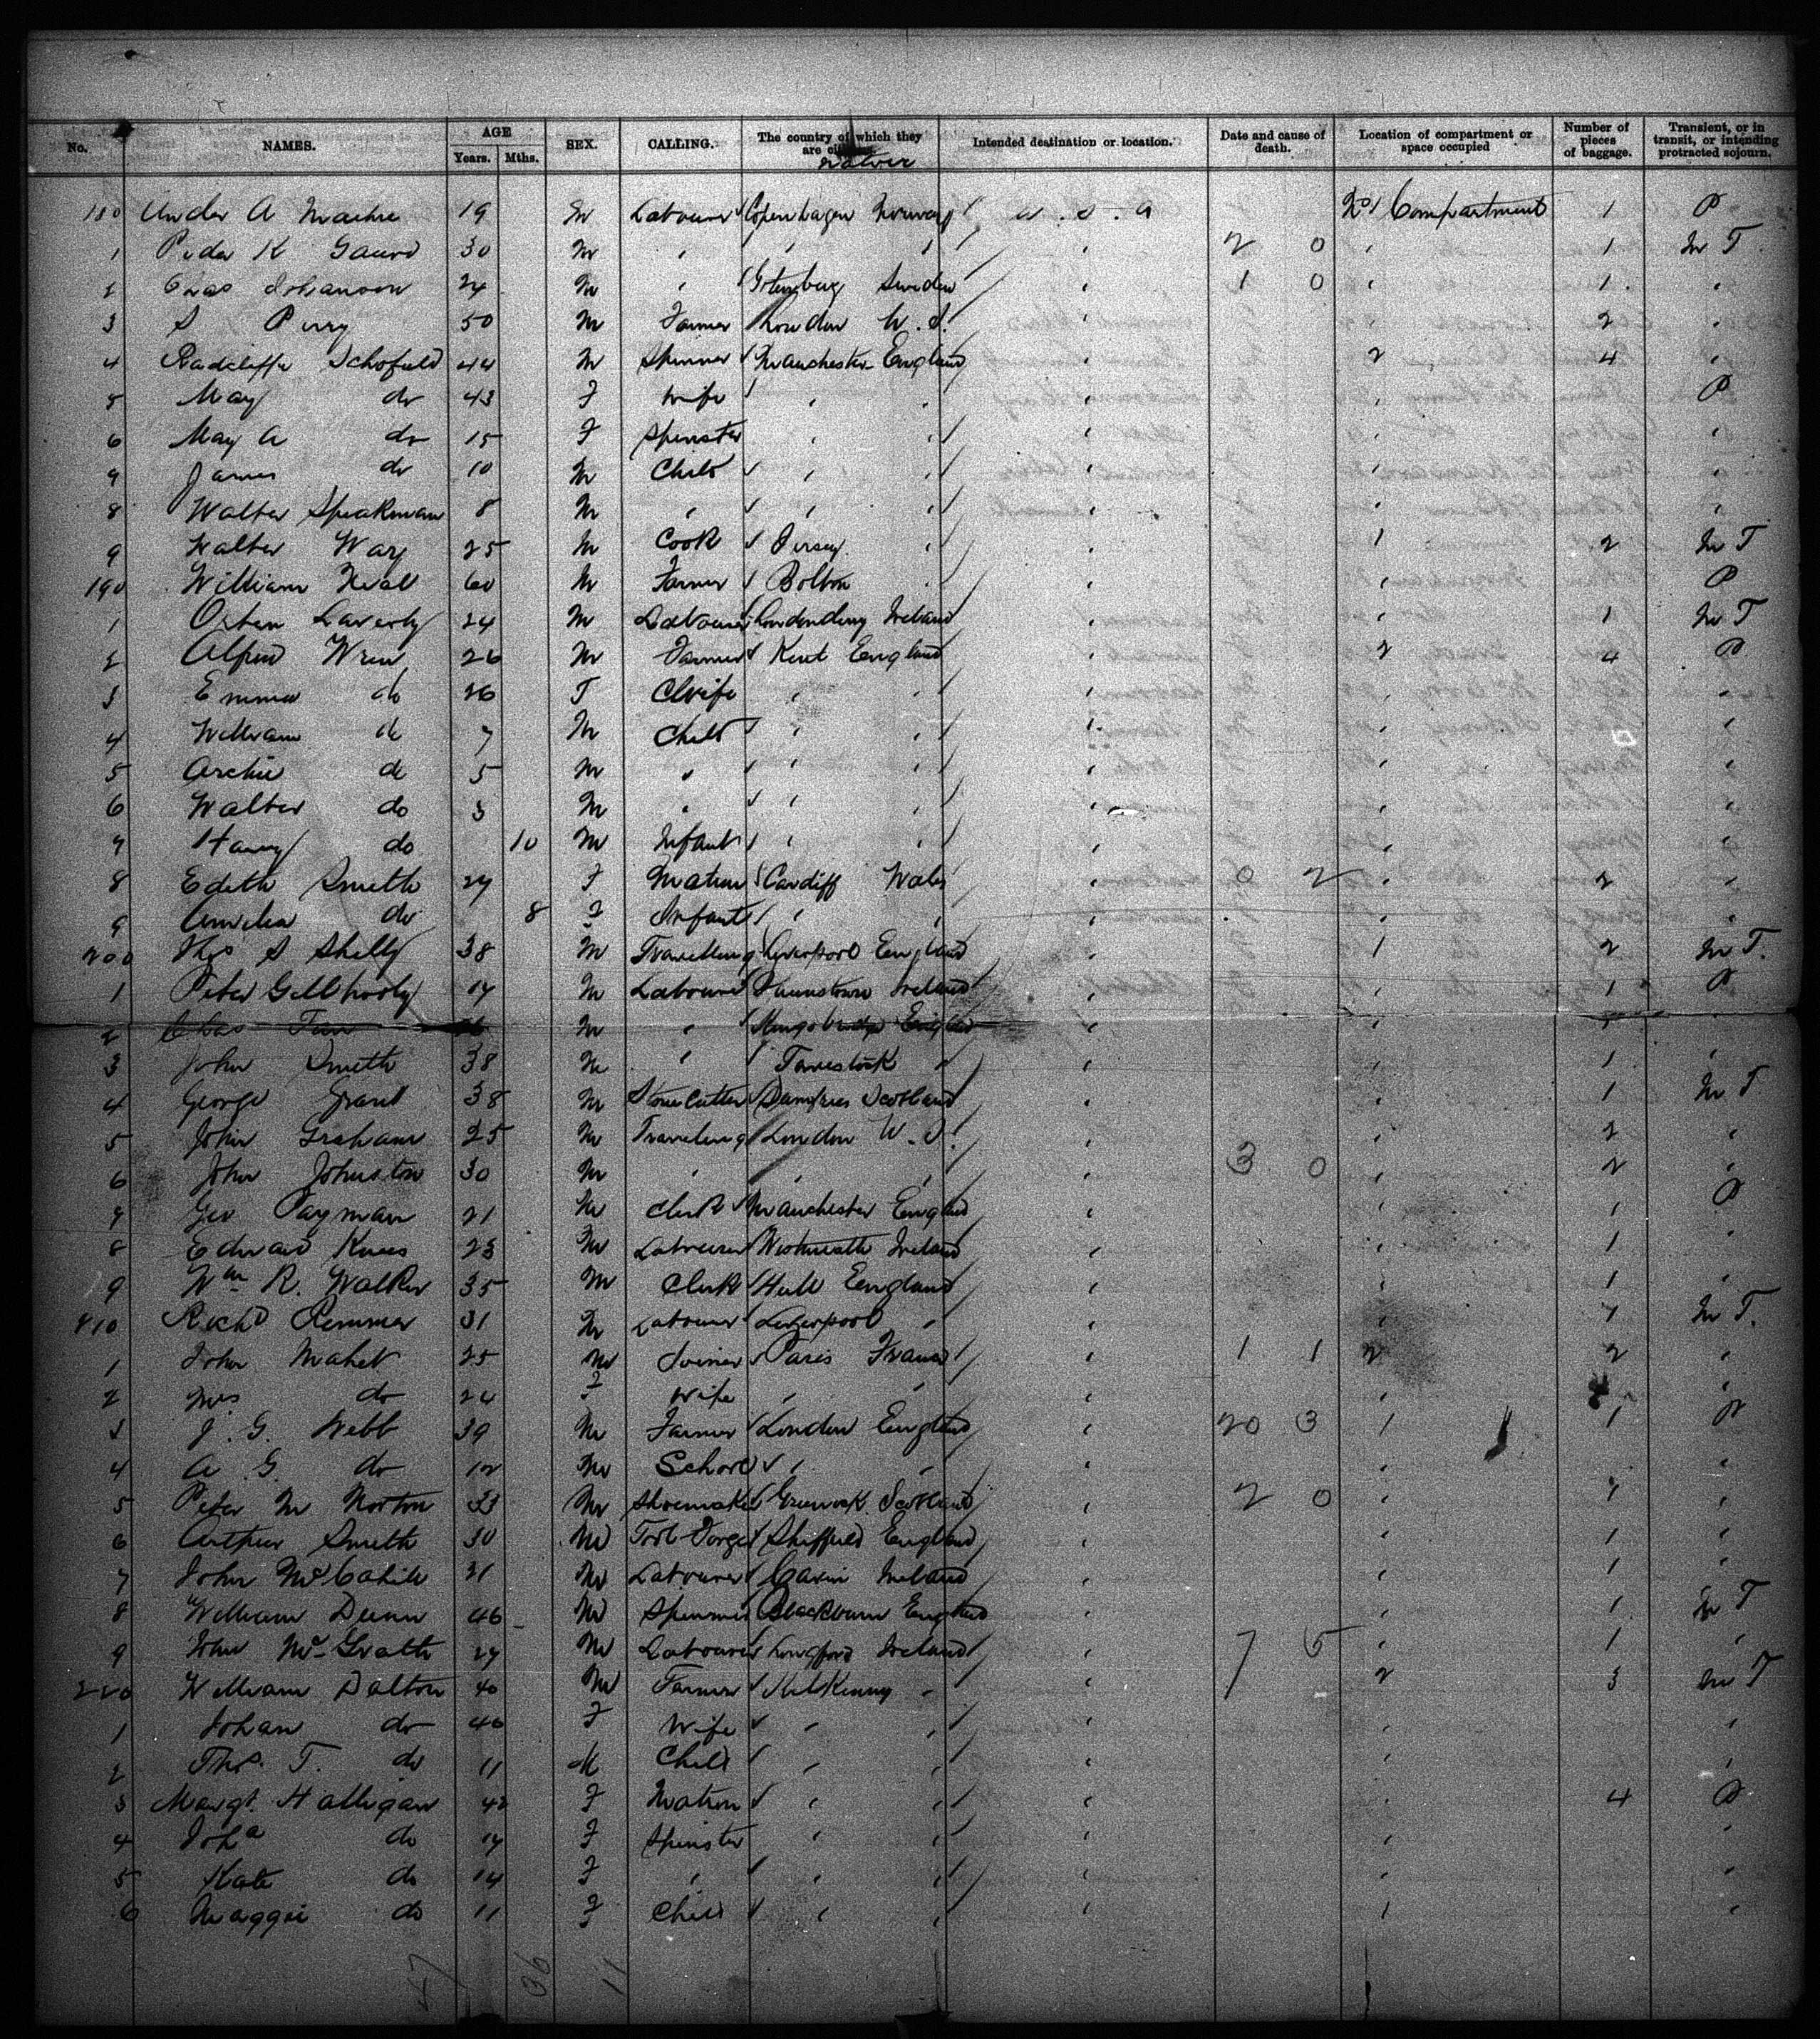 No. NAMES. AGE Years. Mths. SEX. CALLING. The country of which they are citizens. native Intended destination or location. Date and cause of death. Location of compartment or space occupied Number of pieces of baggage. Transient, or in transit, or intending protracted sojourn.
180 Ander A 19 M Labourer Copenhagen Norway U.S.A No 1 Compartment 1 P
1 Peder K 30 M " " " " 2 0 " 1 In T
2 Chas Johanson 24 M " Gotenburg Sweden " 1 0 " 1 "
3 S Perry 50 M Farmer London U.S. " " 2 "
4 Radcliffe Schofield 44 M Spinner Manchester England " 2 4 "
5 May do 43 F Wife " " " " P
6 May A do 15 F Spinster " " " " "
7 James do 10 M Child " " " " "
8 Walter Speakman 8 M " " " " " "
9 Walter Way 25 M Cook Jersey " " 1 2 In T
190 William Neal 60 M Farmer Bolton " " " P
1 Laverty 24 M Labourer Londonderry Ireland " " 1 In T
2 Alfred Wren 26 M Farmer Kent England " 2 4 P
3 Emma do 26 F Wife " " " " "
4 William do 7 M Child " " " " "
5 Archie do 5 M " " " " " "
6 Walter do 3 M " " " " " "
7 Harry do 10 M Infant " " " " "
8 Edith Smith 27 F Matron Cardiff Wales " 0 2 " 2 "
9 Amelia do 8 F Infant " " " " "
200 Thos S Shelly 38 M Travelling Liverpool England " 1 2 In T.
1 Peter Gillhooly 17 M Labourer Queenstown Ireland " " 1 P
2 Chas M " Kingsbridge England " " 1 "
3 John Smith 38 M " Tavestock " " " 1 "
4 George Grant 38 M Stone Cutter Dumfries Scotland " " 1 In T
5 John Graham 25 M Traveling London U.S. " " 2 "
6 John Johnston 30 M " " " " 3 0 " 2 "
7 Geo Payman 21 M Clerk Manchester England " " 1 P
8 Edward 23 M Labourer Westmeath Ireland " " 1 "
9 Wm R. Walker 35 M Clerk Hull England " " 1 "
210 Richd Rimmer 31 M Labourer Liverpool " " " 1 In T.
1 John Mahet 25 M Joiner Paris France " 1 1 2 2 "
2 Mrs do 24 F Wife " " " " "
3 J. G. Webb 39 M Farmer London England " 20 3 1 1 P
4 A. G. do 12 M School " " " " "
5 Peter M Norton 33 M Shoemaker Greenock Scotland " 2 0 " 1 "
6 Arthur Smith 30 M Tool Forger Sheffield England " " 1 "
7 John McCahill 21 M Labourer Cavin Ireland " " 1 "
8 William Dunn 46 M Spinner Blackburn England " " 1 In T
9 John McGrath 27 M Labourer Longford Ireland " 7 5 " 1 "
220 William Dalton 40 M Farmer Kilkenny " " 2 3 In T
1 Johan do 40 F Wife " " " " "
2 Thos. T. do 11 M Child " " " " "
3 Margt. Halligan 42 F Matron " " " " 4 P
4 Joha do 17 F Spinster " " " " "
5 Kate do 14 F " " " " " "
6 Maggie do 11 F Child " " " " "
47 36 11